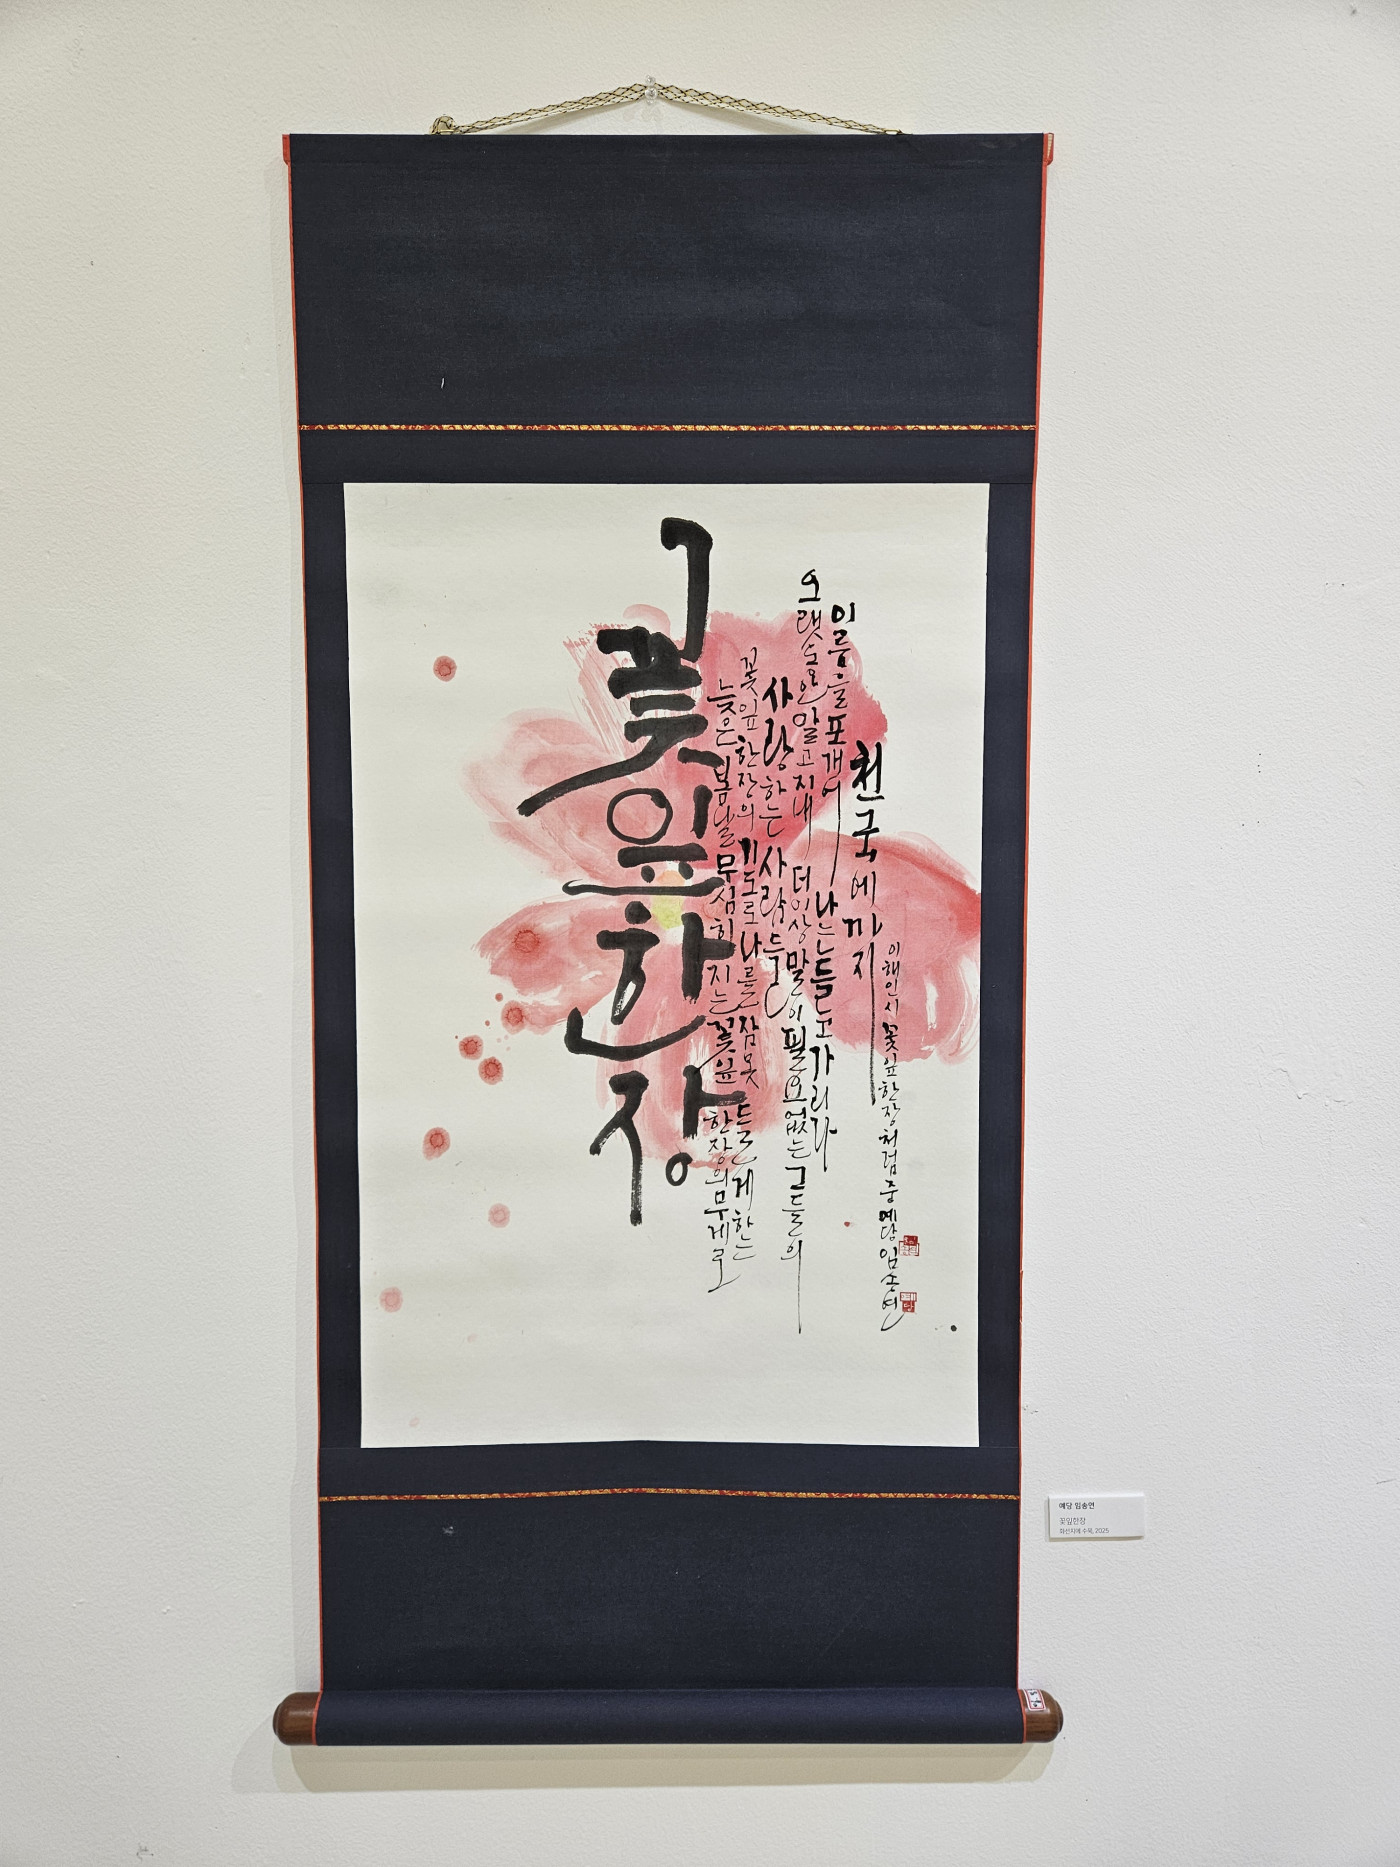 꽃잎한장
늦은 봄날 무심히 지는 꽃잎 한장의 무게로
꽃잎 한장의 기도로 나를 잠 못 들게 하는
사랑하는 사람들
오랫동안 알고 지내 더이상 말이 필요없는 그들의
이름을 포개어 나는 들고 가리라
천국에까지
이해인 시 꽃잎 한장처럼 중 예당 임송연
예당 임송연
꽃잎한장
화선지에 수묵, 2025